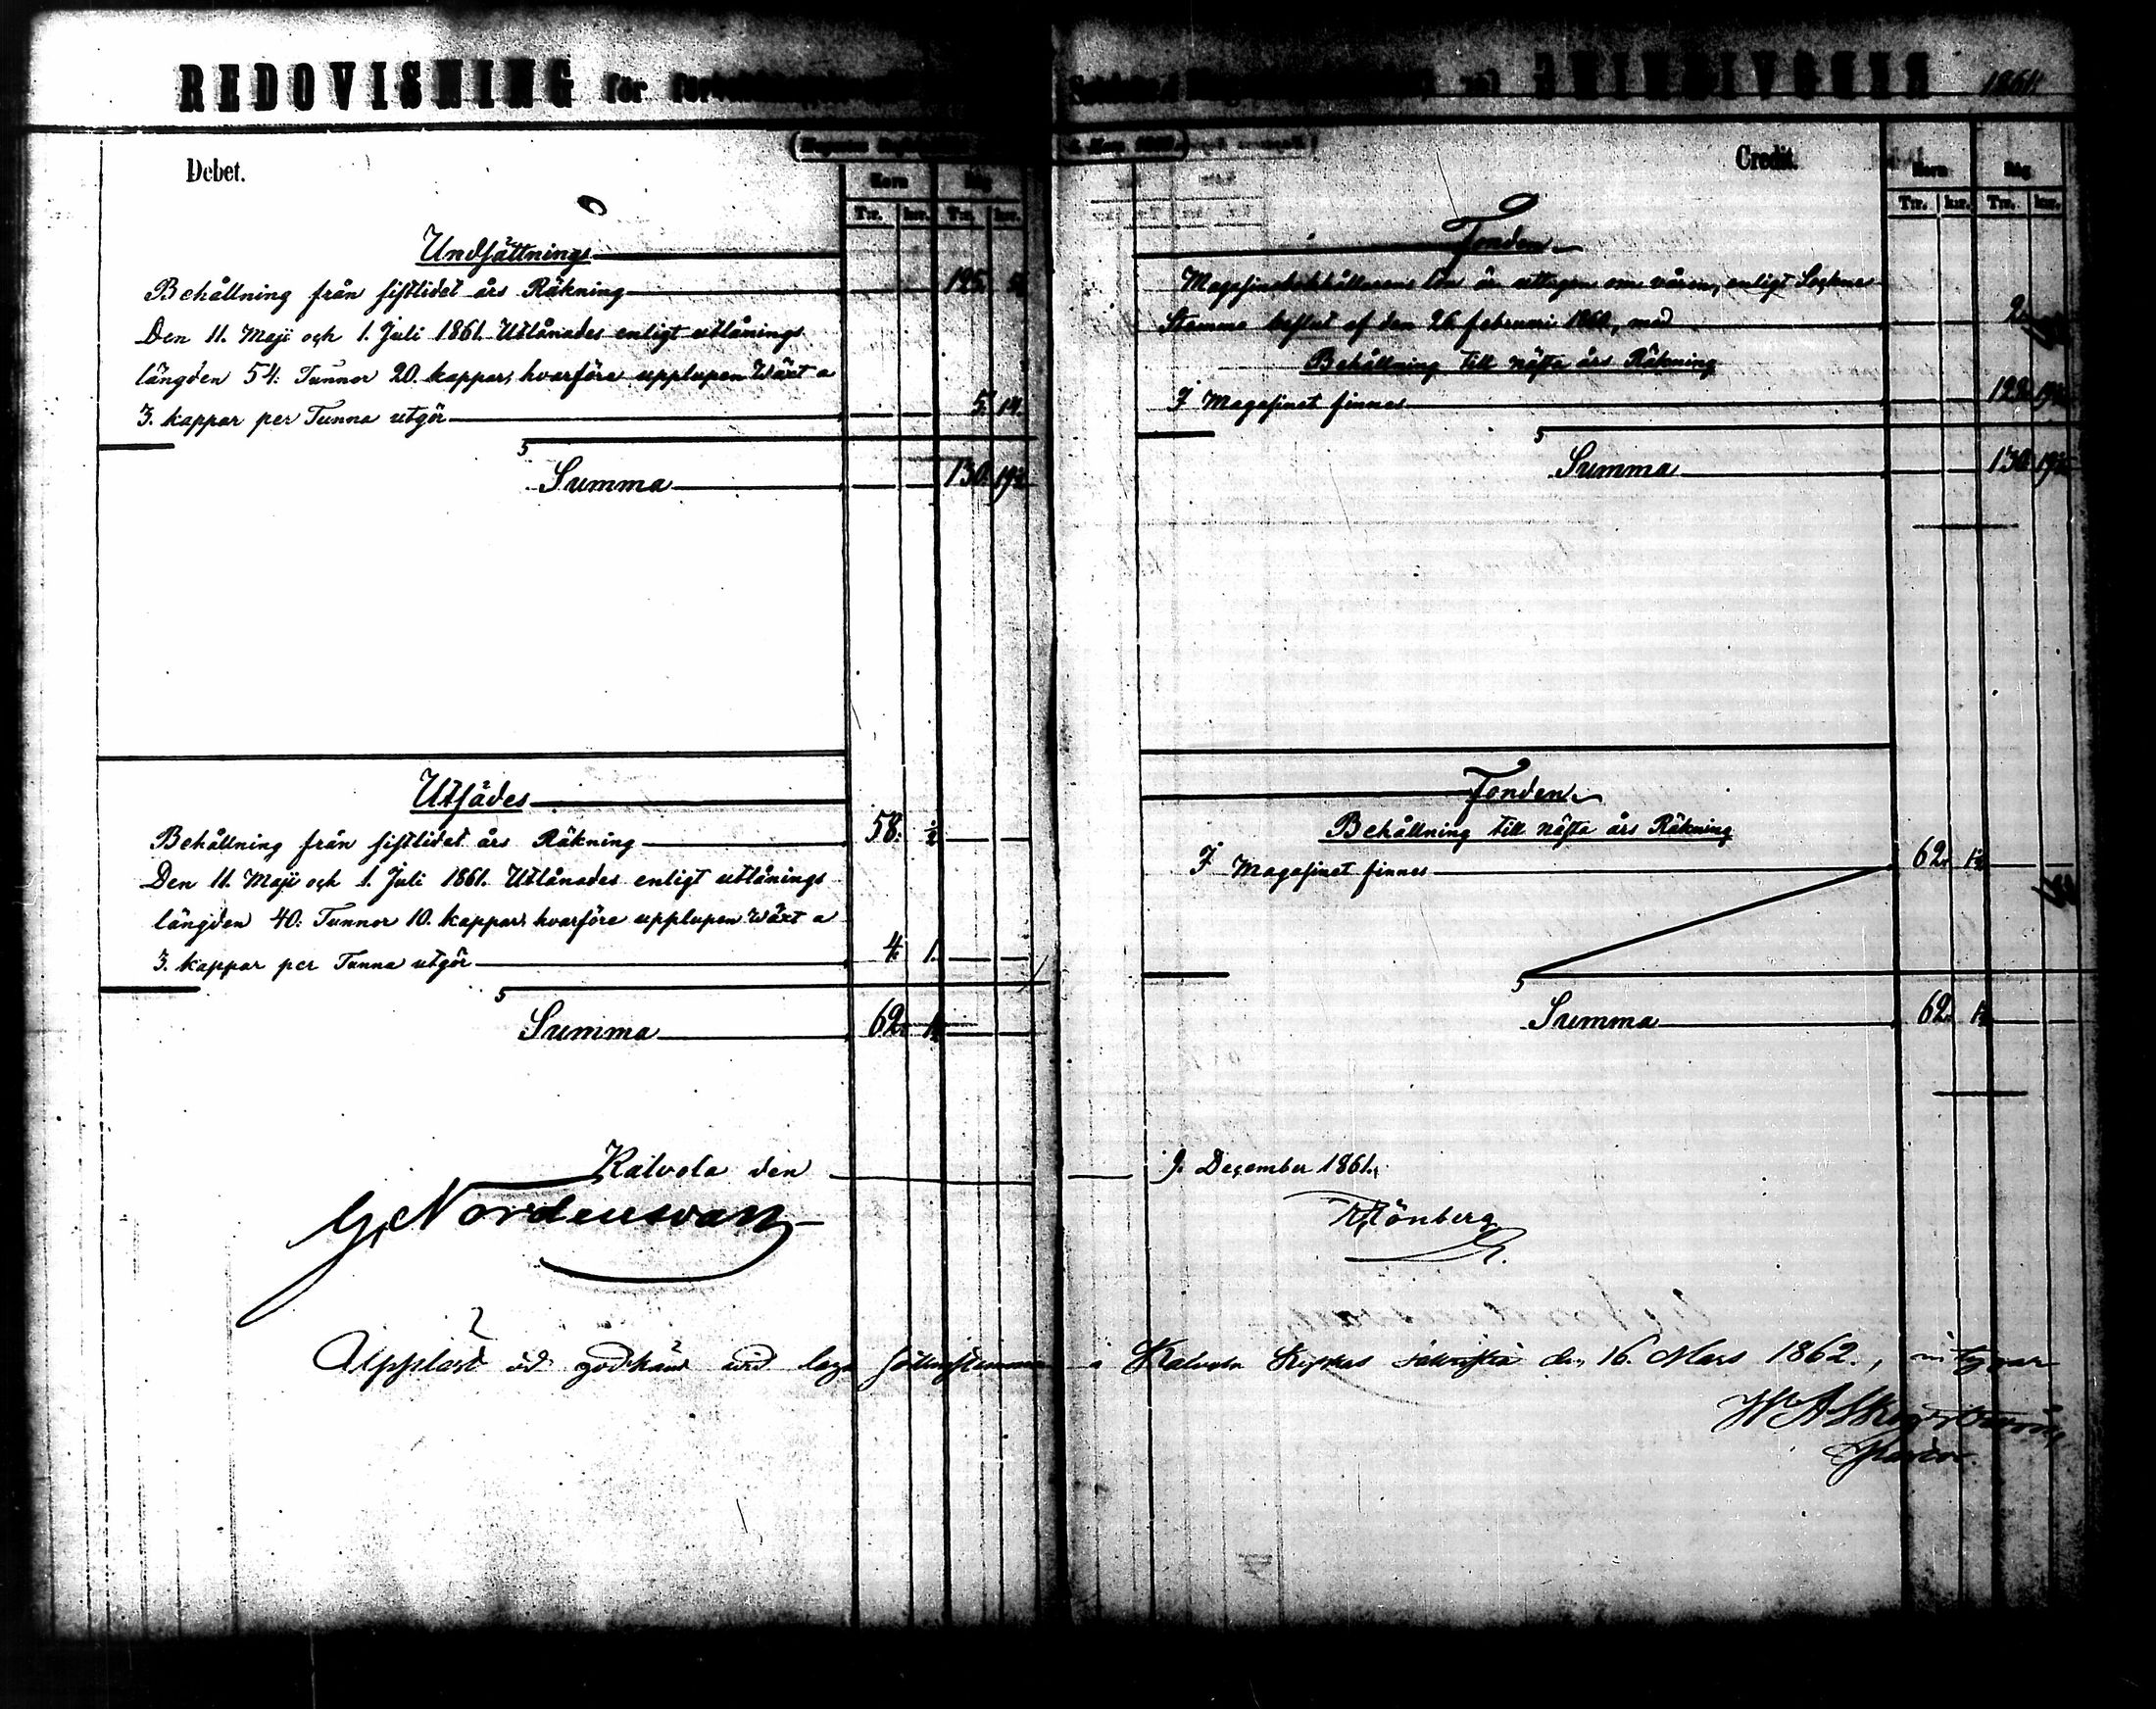 REDOVISNING för
1861
Debet.
Korn
Råg
Tnr. kpr. Tnr. kpr.
Undsättnings
Behållning från sistlidet års Räkning 125. 5½
Den 11. Maji och 1. Juli 1861. Utlånades enligt utlånings
längden 54: Tunnor 20. kappar, hvarföre upplupen Wäxt a
3. kappar per Tunna utgör 5. 14.
Summa 130. 19½
Utsädes
Behållning från sistlidet års Räkning 58. ½
Den 11. Maji och 1. Juli 1861. Utlånades enligt utlånings
längden 40: Tunnor 10. kappar, hvarföre upplupen Wäxt a
3. kappar per Tunna utgör 4. 1.
Summa 62. 1½
Kalvola den
G. Nordenswan
Credit.
Korn
Råg
Tnr. kpr. Tnr. kpr.
Fonden
Magasinsbokhållarens lön är uttagen om våren, enligt Sockne
Stämma beslut af den 26 februari 1860, med
Behållning till näfta års Räkning
I Magasinet finnes
Summa 130. 19½
Fonden
Behållning till näfta års Räkning
I Magasinet finnes 62. 1½
Summa 62. 1½
9. December 1861.
Rönberg
Uppläst och godkänd wid laga sockenstämma i Kalvola Kyrkas sakristia den 16. Mars 1862., intygar